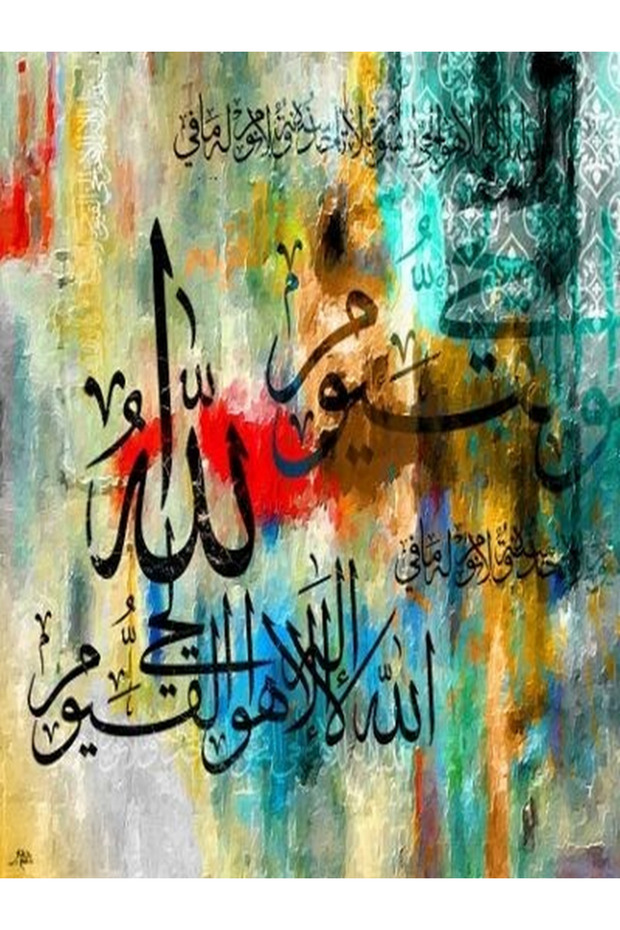 الله لا إله إلا هو الحي القيوم لا تأخذه سنة ولا نوم له ما في
الله لا إله إلا هو الحي القيوم
الحي
القيوم
الله
سنة ولا نوم له ما في
الله لا إله إلا هو الحي القيوم